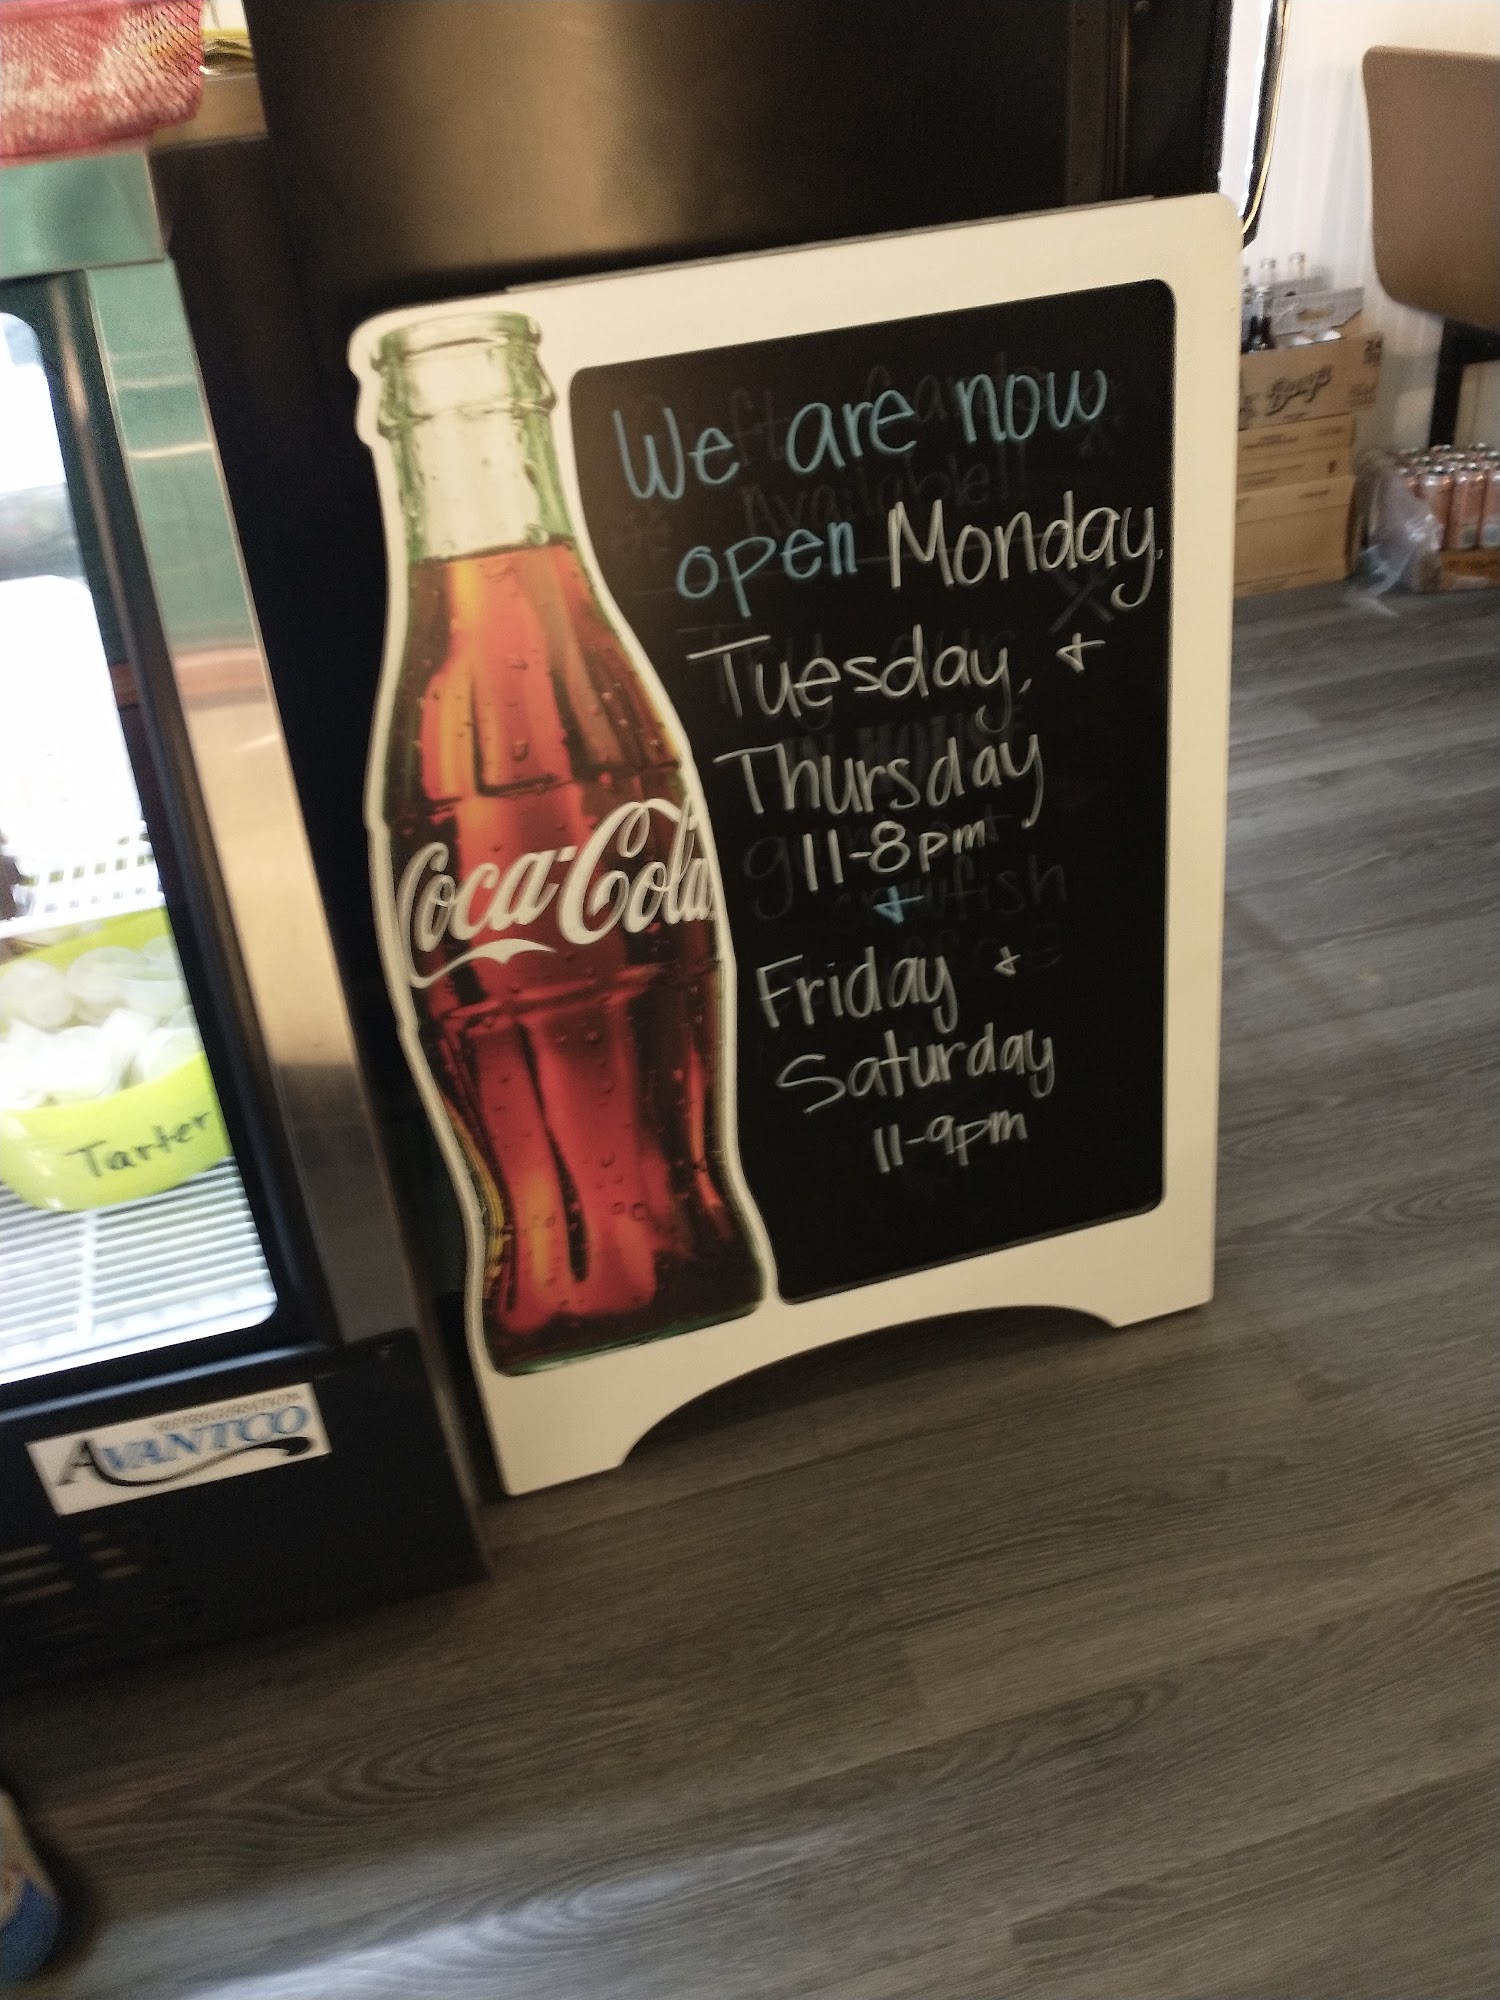 We are now
open Monday,
Tuesday, +
Thursday
11-8pm
+
Friday +
Saturday
11-9pm
Coca-Cola
Tarter
REFRIGERATION
AVANTCO
Barq's